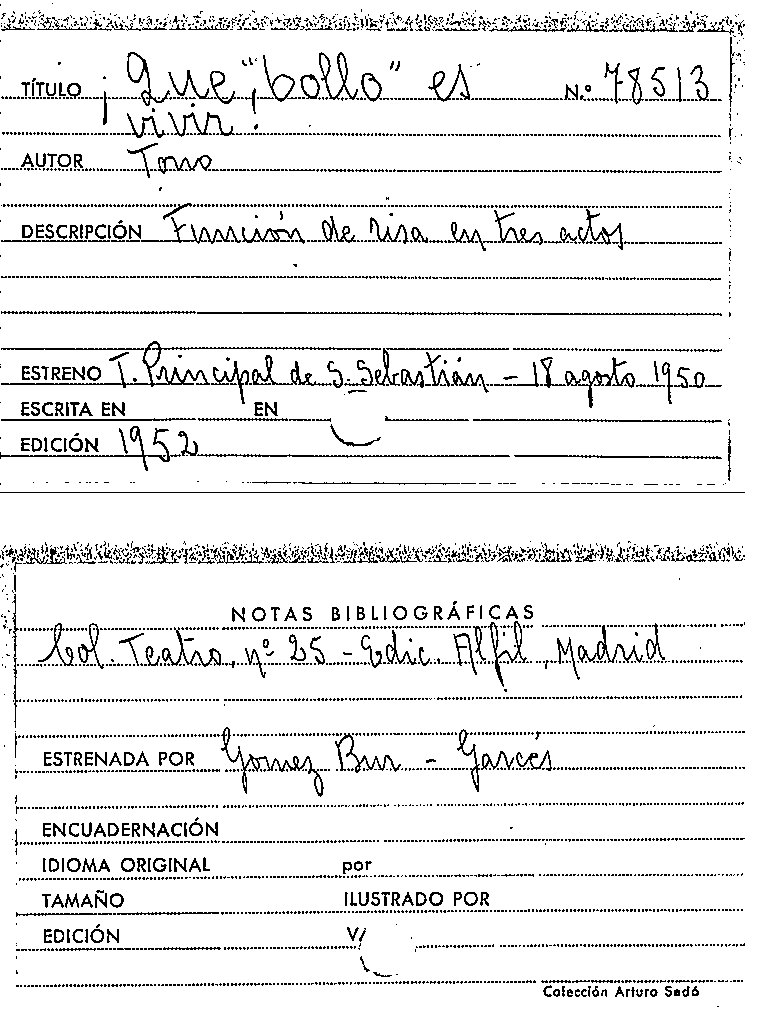 TÍTULO ¡Que "bollo" es N.º 78513
vivir!
AUTOR Tono
DESCRIPCIÓN Función de risa en tres actos
ESTRENO T. Principal de S. Sebastián - 18 agosto 1950
ESCRITA EN EN
EDICIÓN 1952
NOTAS BIBLIOGRÁFICAS
Col. Teatro, nº 25 - Edic. Alfil, Madrid
ESTRENADA POR Gomez Bur - Garcés
ENCUADERNACIÓN
IDIOMA ORIGINAL por
TAMAÑO ILUSTRADO POR
EDICIÓN V/
Colección Arturo Sedó